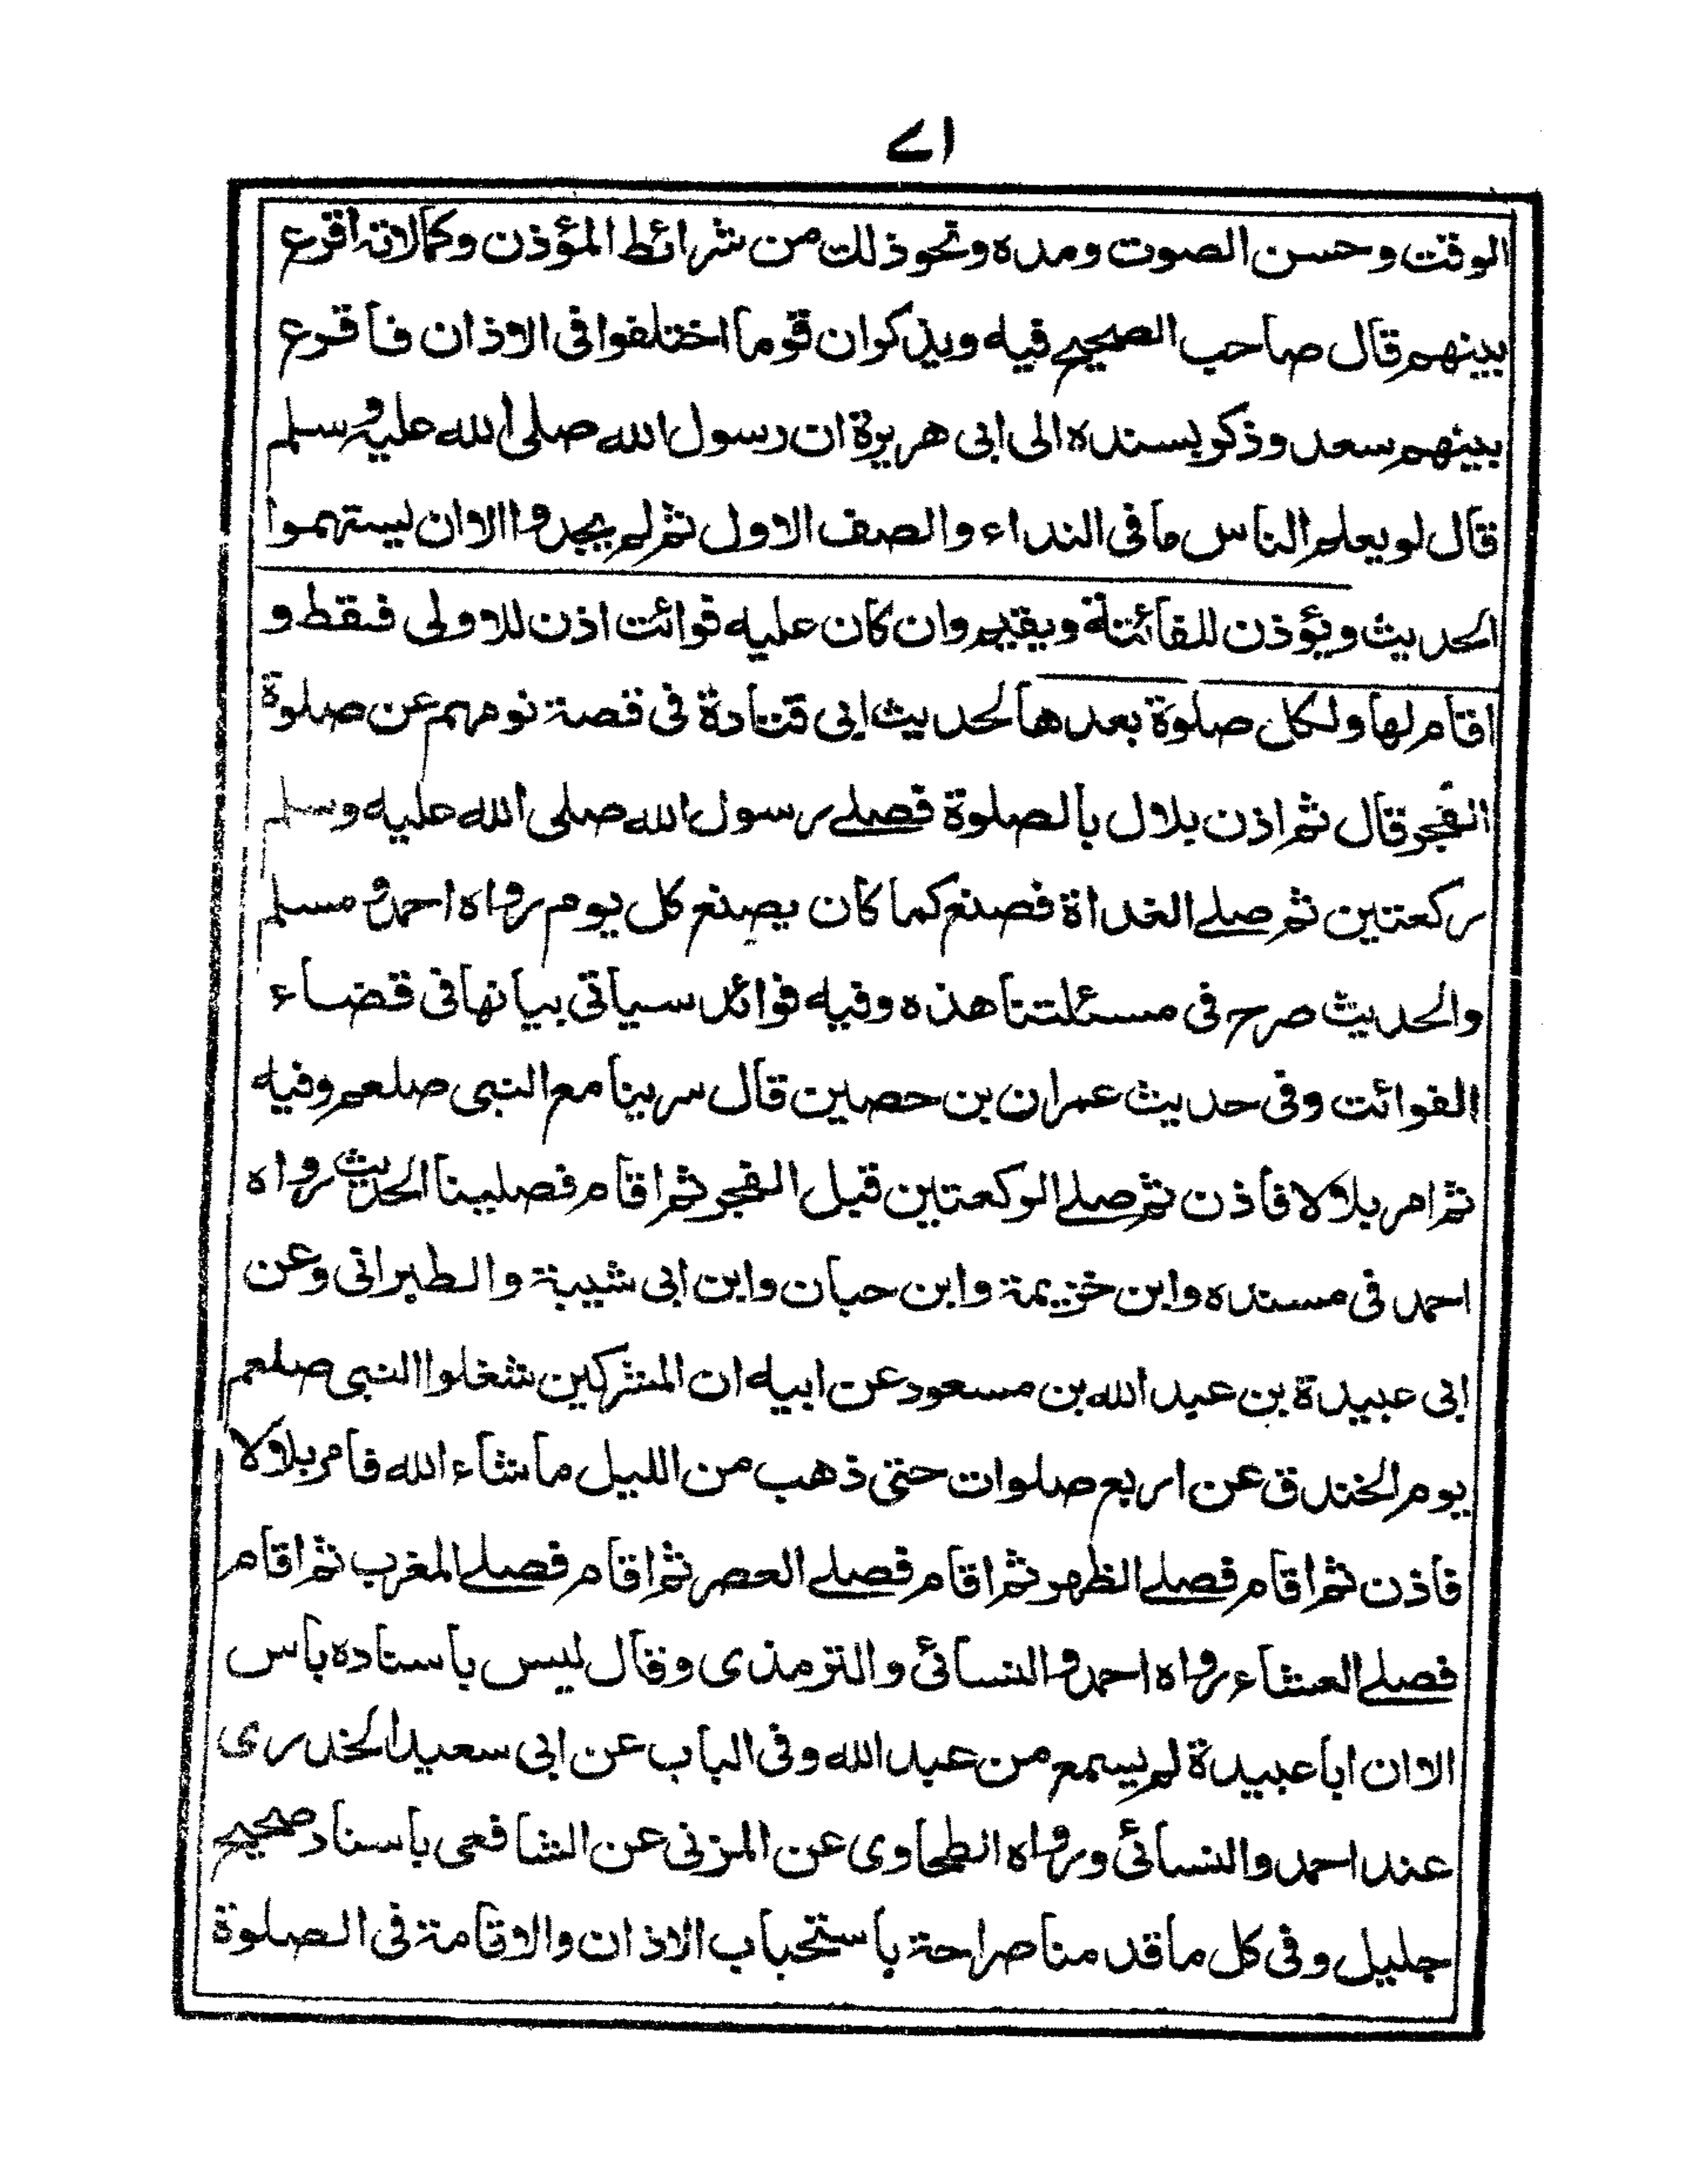 ۷۱
الوقت وحسن الصوت ومده ونحو ذلك من شرائط المؤذن وكمالاته اقرع
بينهم قال صاحب الصحيح فيه ويذكر ان قوما اختلفوا فى الاذان فاقرع
بينهم سعد وذكر بسنده الى ابى هريرة ان رسول الله صلى الله عليه وسلم
قال لو يعلم الناس ما فى النداء والصف الاول ثم لم يجدوا الا ان يستهموا
الحديث ويؤذن للفائتة ويقيم وان كان عليه فوائت اذن للاولى فقط و
اقام لها ولكل صلوة بعدها لحديث ابى قتادة فى قصة نومهم عن صلوة
الفجر قال ثم اذن بلال بالصلوة فصلے رسول الله صلى الله عليه وسلم
ركعتين ثم صلے الغداة فصنع كما كان يصنع كل يوم رواه احمد ومسلم
والحديث صرح فى مسئلتنا هذه وفيه فوائد سياتى بيانها فى قضاء
الفوائت وفى حديث عمران بن حصين قال سرينا مع النبى صلعم وفيه
ثم امر بلالا فاذن ثم صلے الركعتين قبل الفجر ثم اقام فصلينا الحديث رواه
احمد فى مسنده وابن خزيمة وابن حبان وابن ابى شيبة والطبرانى وعن
ابى عبيدة بن عبد الله بن مسعود عن ابيه ان المشركين شغلوا النبى صلعم
يوم الخندق عن اربع صلوات حتى ذهب من الليل ما شاء الله فامر بلالا
فاذن ثم اقام فصلے الظهر ثم اقام فصلے العصر ثم اقام فصلے المغرب ثم اقام
فصلے العشاء رواه احمد والنسائى والترمذى وقال ليس باسناده باس
الا ان ابا عبيدة لم يسمع من عبد الله وفى الباب عن ابى سعيد الخدرى
عند احمد والنسائى ورواه الطحاوى عن المزنى عن الشافعى باسناد صحيح
جليل وفى كل ما قدمنا صراحة باستحباب الاذان والاقامة فى الصلوة